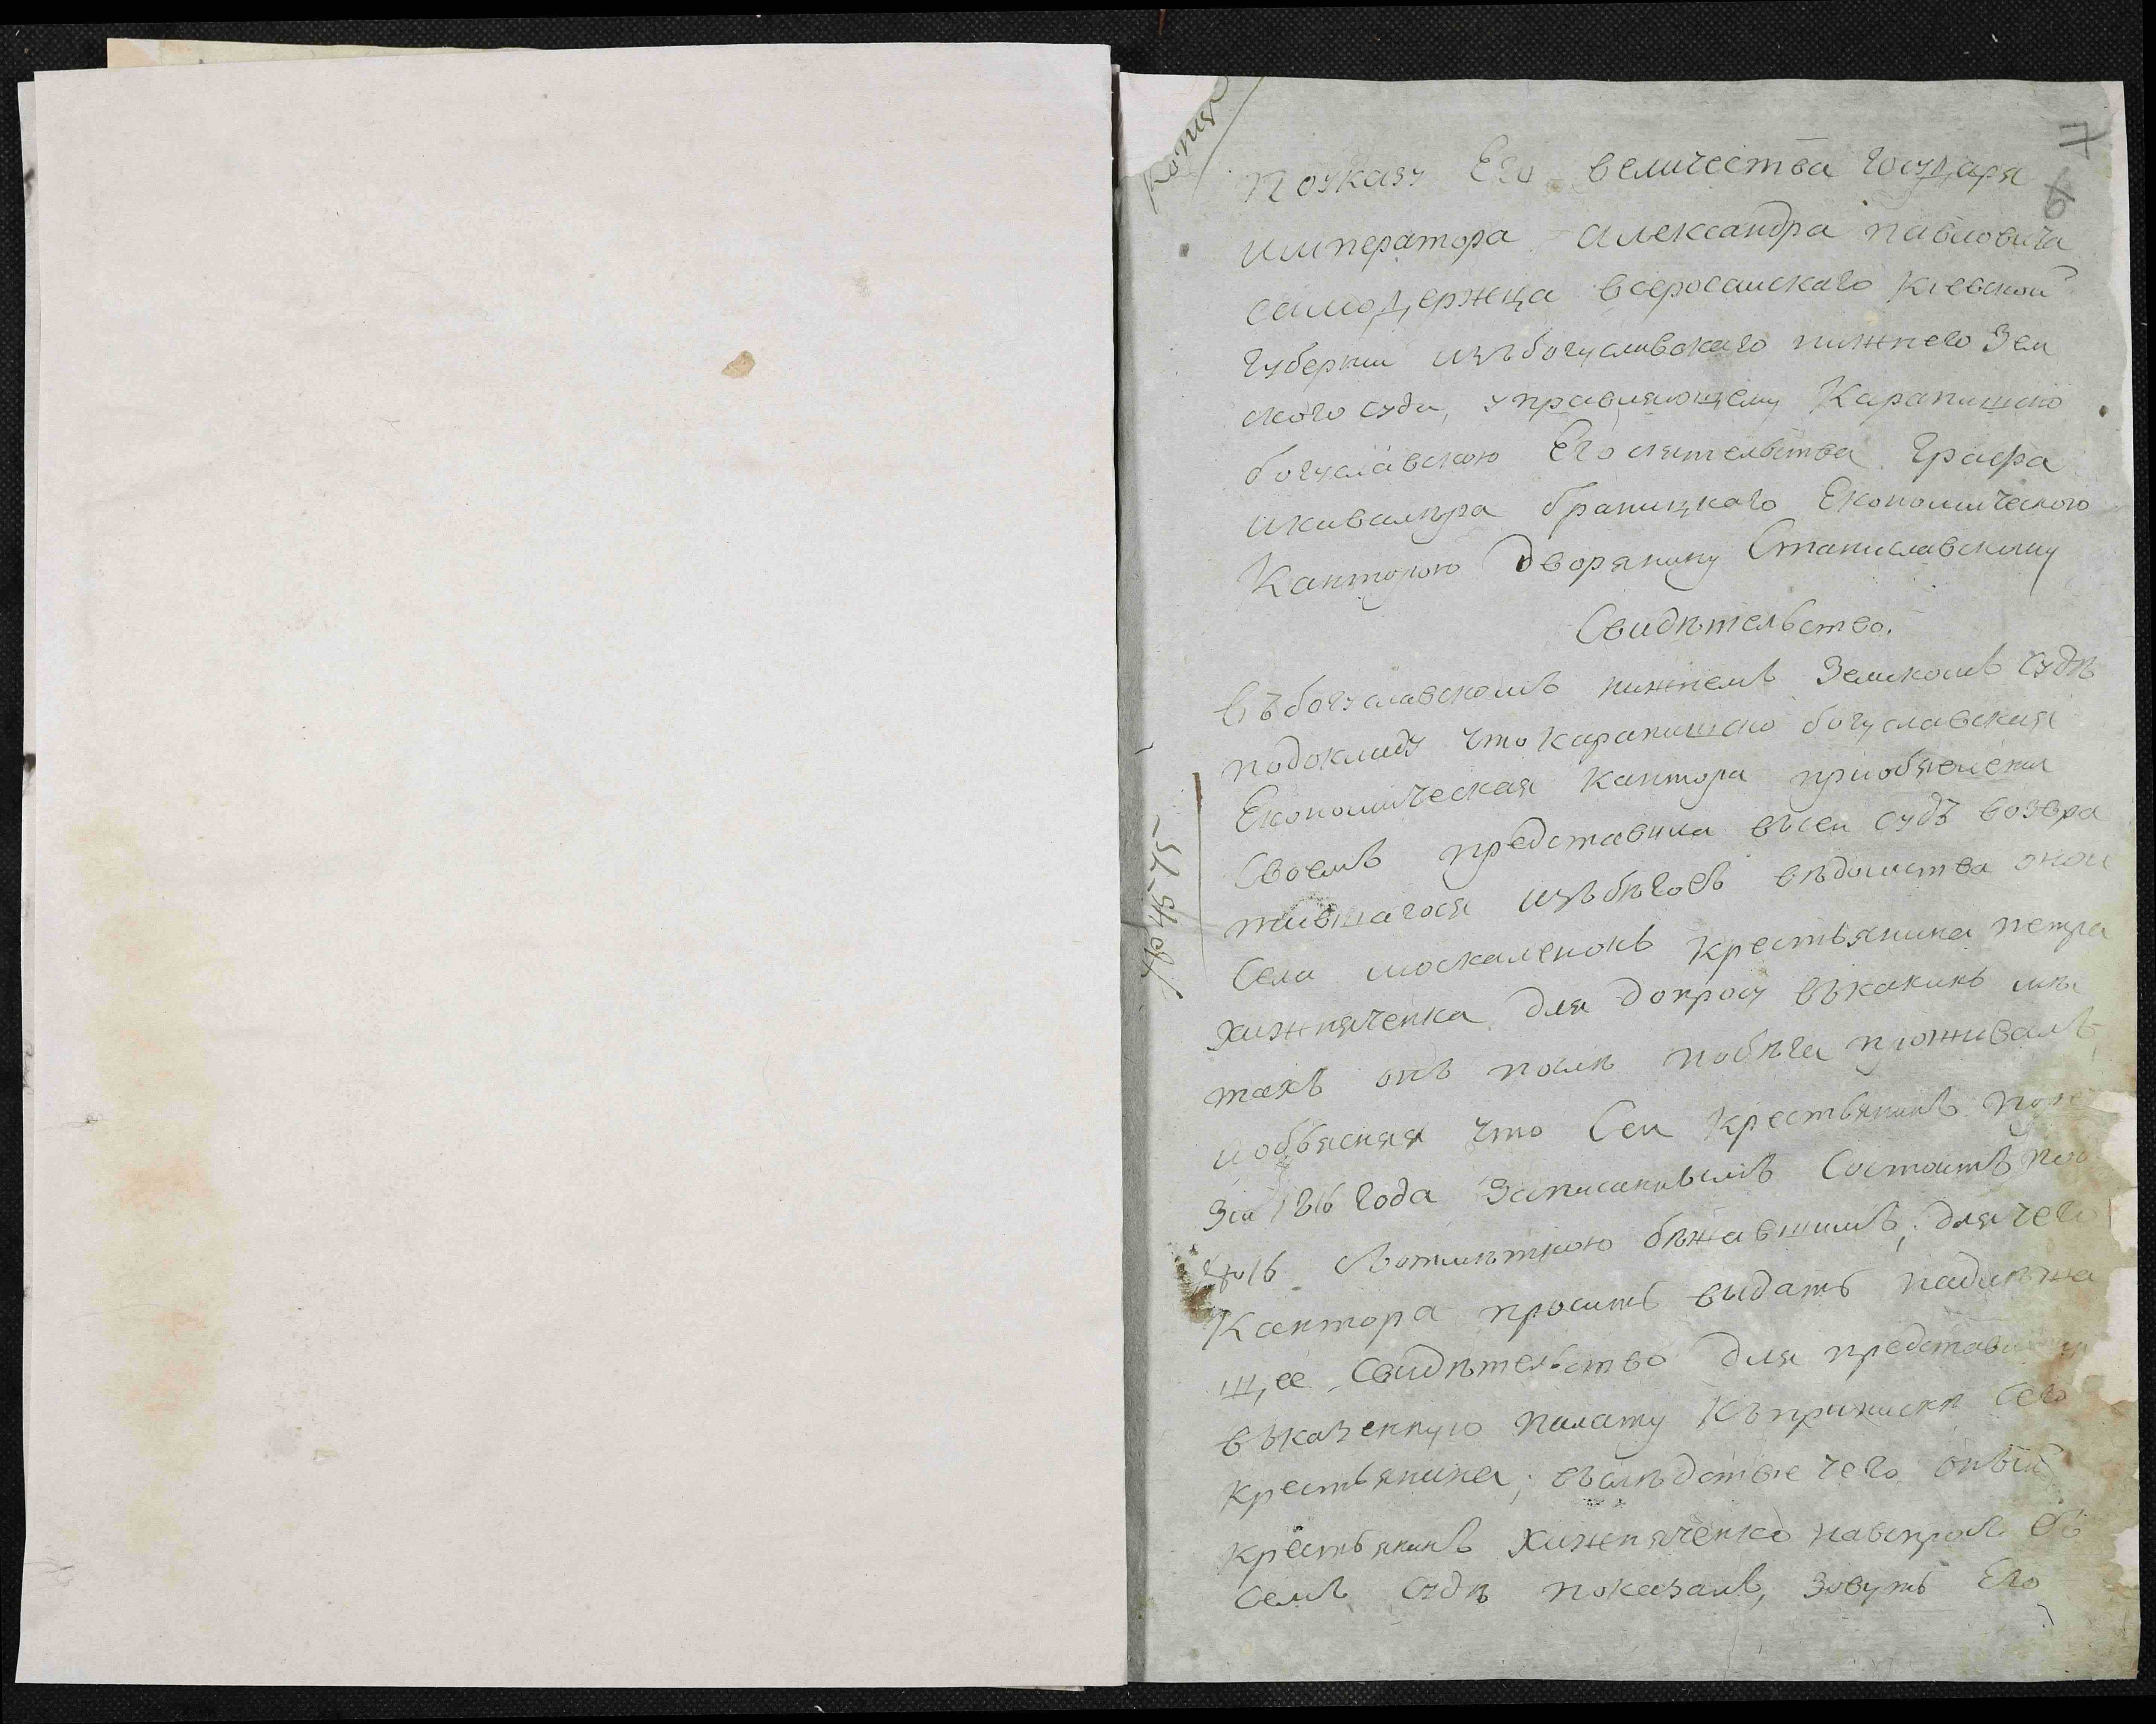 Копия
7
6
Поуказу Его величества государя
императора Александра павловича
самодержца всеросаискаго Киевской
губернии изъбогуславскаго нижнего Зем
ского суда, управляющему Карапишско
богуславскою Его сиятельства Графа
икавалѣра браницкаго Економического
Канторою дворянину Станиславскому
Свидѣтельство.
Въбогуславскомъ нижнемъ Земскомъ судѣ
подокладу что карапишско богуславская
Економическая Кантора приобявлении
Своемъ представила въсеи судъ возвра
тившагося изъбѣговъ вѣдомства оной
Села москаленокъ крестьянина петра
хижняченка для допросу въкакихъ мѣс
тахъ онъ послѣ побѣга проживалъ
иобъясняя что Сеи крестьянинъ поре
зіи 1816 года Записаннымъ Состоитъ под
№16 Сотмѣткою бѣжавшимъ, для чего
Кантора проситъ выдать надлѣжа
щее Свидѣтельство для представления
въказенную палату Къприписки Сего
крестьянина; въслѣдствие чего оный
крестьянинъ хижняченко навспросъ въ
Семъ судѣ показалъ, зовутъ Его